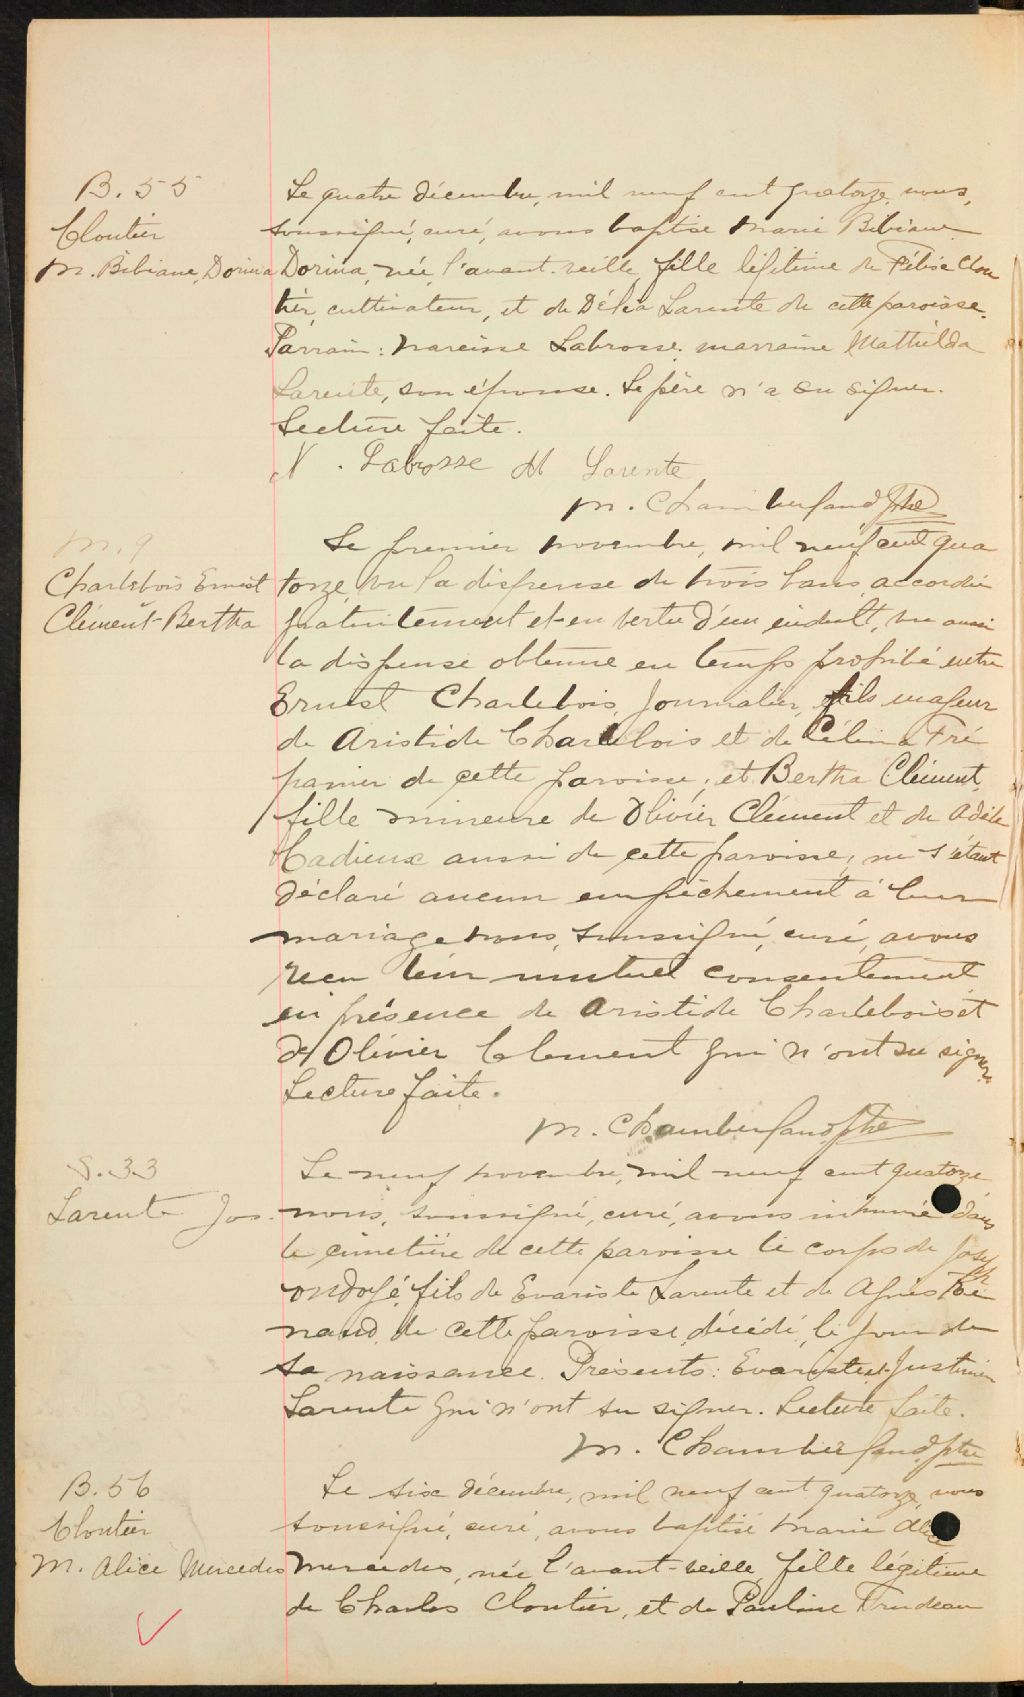 B. 55
Cloutier
M. Bibiane, Dorina
Le quatre décembre, mil neuf cent quatorze, nous,
soussigné, curé, avons baptisé Marie Bibiane
Dorina, née l'avant-veille, fille légitime de Félix Clou
tier, cultivateur, et de Délia Larente de cette paroisse.
Parrain: Narcisse Labrosse, marraine Mathilda
Larente, son épouse. Le père n'a su signer.
Lecture faite.
N. Labrosse M Larente
M. Chamberland Ptre
M. 9
Charlebois Ernest
Clément Bertha
Le premier novembre, mil neuf cent qua
torze, vu la dispense de trois bans accordée
gratuitement et en vertu d'un indult, vu aussi
la dispense obtenue en temps prohibé entre
Ernest Charlebois, journalier, fils majeur
de Aristide Charlebois et de Célina Tré
panier de cette paroisse, et Bertha Clément,
fille mineure de Olivier Clément et de Adèle
Cadieux aussi de cette paroisse, ne s'étant
déclaré aucun empêchement à leur
mariage nous, soussigné, curé, avons
recu leur mutuel consentement
en présence de Aristide Charlebois et
de Olivier Clement qui n'ont su signer.
Lecture faite.
M. Chamberland Ptre
S. 33
Larente Jos.
Le neuf novembre, mil neuf cent quatorze
nous, soussigné, curé, avons inhumé dans
le cimetière de cette paroisse le corps de Joseph
ondoyé, fils de Evariste Larente et de Agnès Ré
naud, de cette paroisse, décédé, le jour de
sa naissance. Présents: Evariste et Justinien
Larente qui n'ont su signer. Lecture faite.
M. Chamberland, ptre
B. 56
Cloutier
M. Alice Mercedes
Le six décembre, mil neuf cent quatorze, nous
soussigné, curé, avons baptisé Marie Alice
Mercédes, née l'avant-veille, fille légitime
de Charles Cloutier, et de Pauline Trudeau